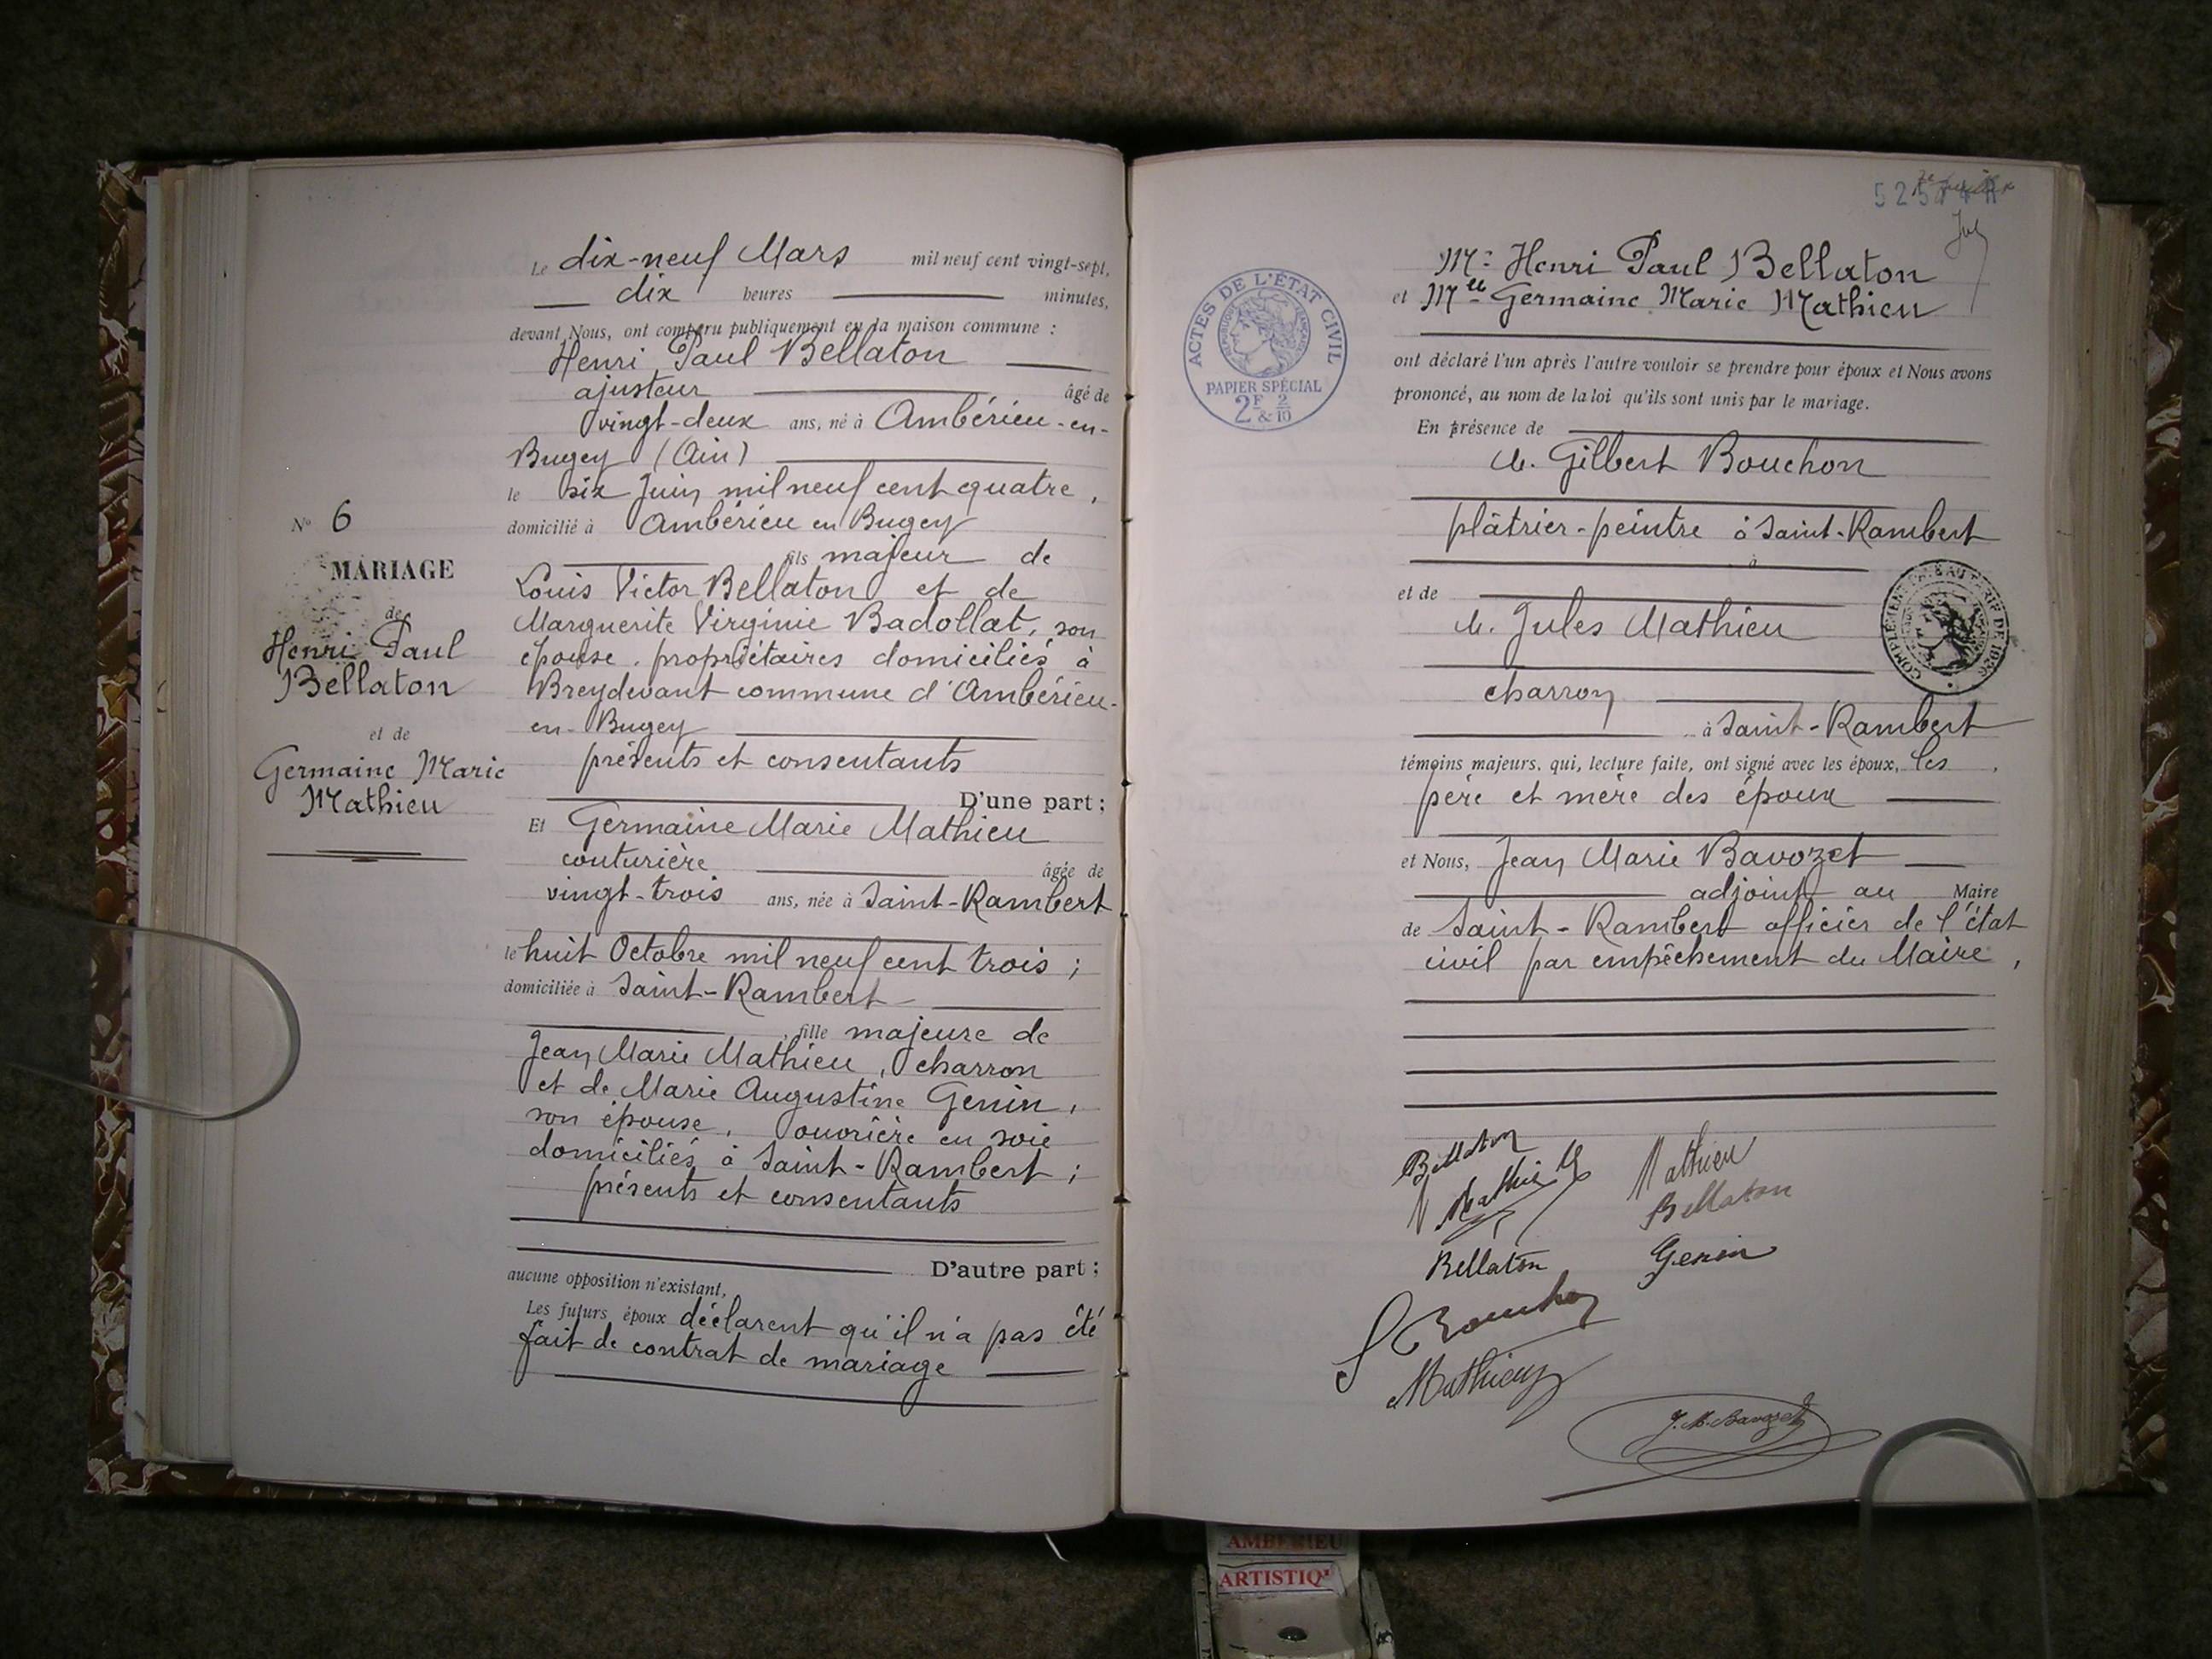 Le dix-neuf Mars mil neuf cent vingt-sept,
dix heures minutes,
devant Nous, ont comparu publiquement en la maison commune :
Henri Paul Bellaton
ajusteur âgé de
vingt-deux ans, né à Ambérieu-en-
Bugey (Ain)
le six Juin mil neuf cent quatre,
domicilié à Ambérieu en Bugey
fils majeur de
Louis Victor Bellaton et de
Marguerite Virginie Badollat, son
épouse, propriétaires domiciliés à
Breydevant commune d'Ambérieu-
en-Bugey
présents et consentants
D'une part ;
Et Germaine Marie Mathieu
couturière âgée de
vingt-trois ans, née à Saint-Rambert
le huit Octobre mil neuf cent trois ;
domiciliée à Saint-Rambert
fille majeure de
Jean Marie Mathieu, charron
et de Marie Augustine Genin,
son épouse, ouvrière en soie
domiciliés à Saint-Rambert ;
présents et consentants
D'autre part ;
aucune opposition n'existant,
Les futurs époux déclarent qu'il n'a pas été
fait de contrat de mariage
N° 6
MARIAGE
de
Henri Paul
Bellaton
et de
Germaine Marie
Mathieu
ACTES DE L'ÉTAT CIVIL
RÉPUBLIQUE FRANÇAISE
PAPIER SPÉCIAL
2F & 2/10
Mr Henri Paul Bellaton
et Melle Germaine Marie Mathieu
ont déclaré l'un après l'autre vouloir se prendre pour époux et Nous avons
prononcé, au nom de la loi qu'ils sont unis par le mariage.
En présence de
M. Gilbert Bouchon
plâtrier-peintre à Saint-Rambert
à
et de
M. Jules Mathieu
charron
à Saint-Rambert
témoins majeurs, qui, lecture faite, ont signé avec les époux, les
père et mère des époux
et Nous, Jean Marie Bavozet
adjoint au Maire
de Saint-Rambert officier de l'état
civil par empêchement du Maire,
Bellaton
Mathieu
Mathieu
Bellaton
Bellaton
Genin
Bouchon
Mathieu
J. M. Bavozet
AMBERIEU
ARTISTIQ